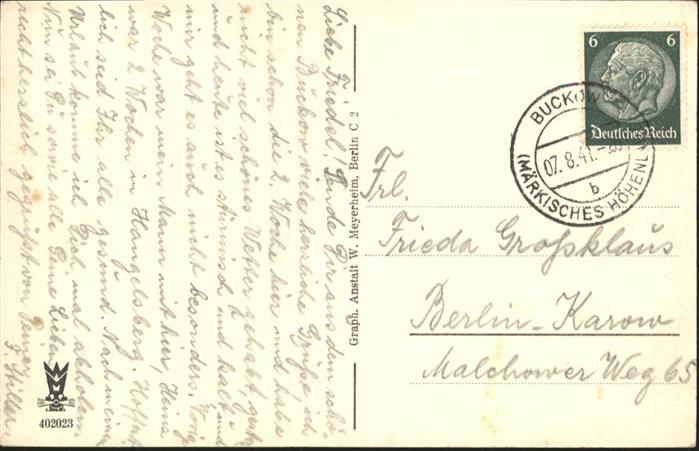 Liebe Friedel! Sende Dir aus dem schö-
nen Buckow viele herzliche Grüße, ich
bin schon die 2. Woche hier und habe
nicht viel schönes Wetter gehabt, gestern
und heute ist es stürmisch und kalt, und
mir geht es auch nicht besonders. Vorige
Woche war mein Mann mit hier, Heinz
war 2 Wochen in Hangelsberg. Hoffent-
lich seid Ihr alle gesund. Nach meinem
Urlaub komme ich Dich mal abholen.
Nun sei Du sowie alle Deine Lieben
recht herzlich gegrüßt von Deiner
F. Hiller
402023
Graph. Anstalt W. Meyerheim, Berlin C 2
6 6
Deutsches Reich
BUCKOW
07.8.41.
b
(MÄRKISCHES HÖHENL
Frl.
Frieda Großklaus
Berlin-Karow
Malchower Weg 65